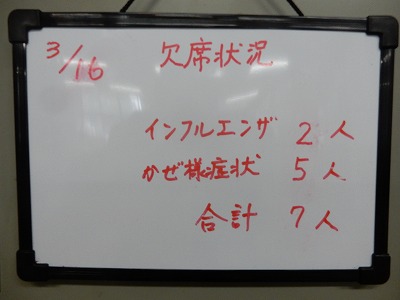 3/16 欠席状況
インフルエンザ 2人
かぜ様症状 5人
合計 7人